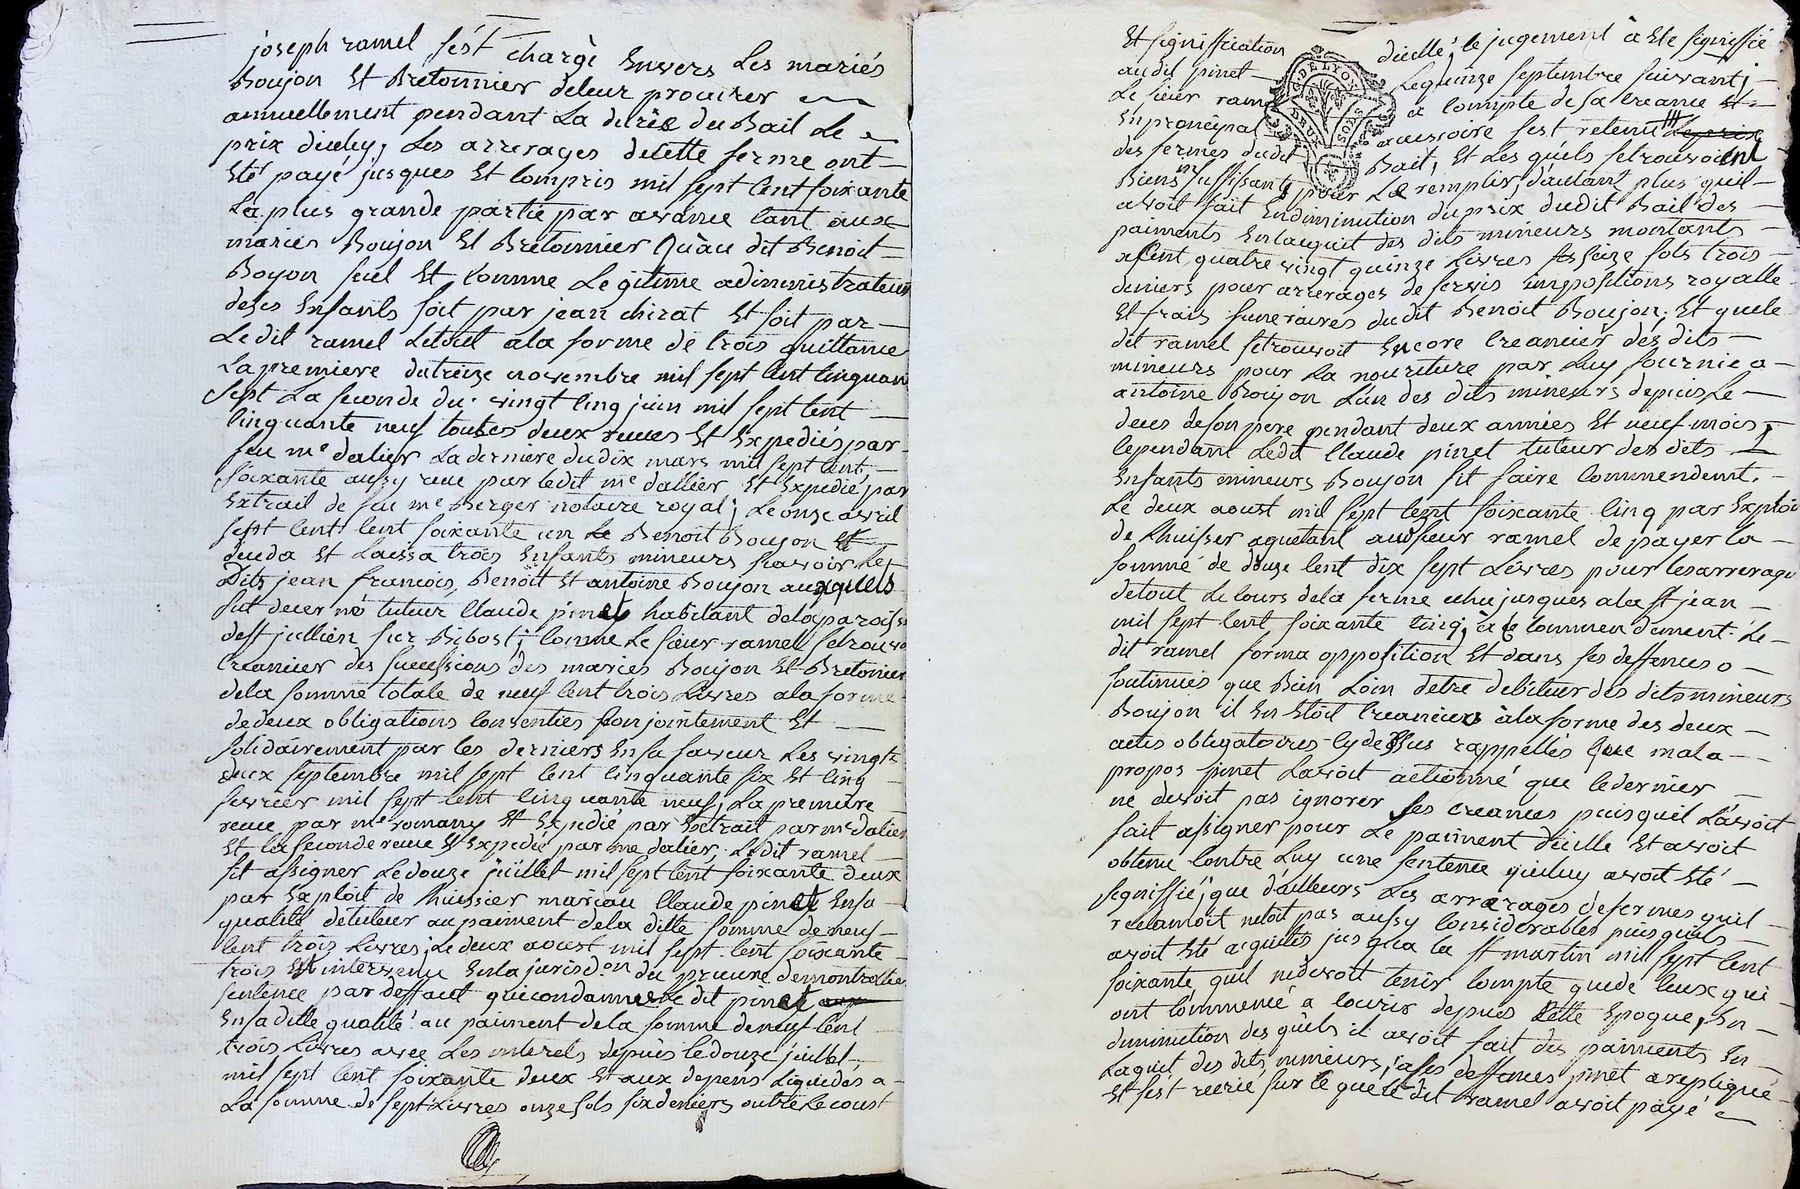 joseph ramel s'est chargé Envers Les mariés
Boujon Et Bretonnier deleur procurer
annuellement pendant La durée du Bail Le
prix diceluy, Les arrerages decette ferme ont
Eté payé jusques Et compris mil sept Cent soixante
La plus grande partie par avance tant aux
mariés Boujon Et Bretonnier Qu'au dit Benoit
Boyon seul Et comme Legitime administrateur
deses Enfants soit par jean chirat Et soit par
Ledit ramel Letout ala forme de trois quittance
La premiere dutreize novembre mil sept Cent Cinquan
sept La seconde du vingt Cinq juin mil sept Cent
Cinquante neuf toutes deux recues Et Expediés par
feu me dalier La derniere dudix mars mil sept Cent
soixante aussy recue par ledit me dallier Et Expedié par
Extrait de feu me Berger notaire royal; Le onze avril
sept Cent Cent soixante un Le Benoit Boujon
deceda Et Laissa trois Enfants mineurs scavoir Les
Dits jean francois, Benoit Et antoine Boujon auxquels
fut decerné tuteur Claude pinet habitant dela parois
de st jullien sur Bibost; Comme Le sieur ramel setrouvo
Creancier des successions des mariés Boujon Et Bretonier
dela somme totale de neuf Cent trois Livres ala forme
dedeux obligations Consenties Conjointement Et
solidairement par les derniers En sa faveur Les vingt
deux septembre mil sept Cent Cinquante six Et Cinq
fevrier mil sept Cent Cinquante neuf, La premiere
recue par me romany Et Expedié par Extrait par me dalier
Et la seconde recue Et Expedié par me dalier, Ledit ramel
fit assigner Ledouze juillet mil sept Cent soixante deux
par Exploit de Lhuissier mariau Claude pinet Ensa
qualité detuteur au paiment dela ditte somme deneuf
Cent trois Livres; Ledeux aoust mil sept Cent soixante
trois Est intervenu Enla jurisd.on du prieuré demontrottier
sentence par deffaut quicondamne Le dit pinet
Ensa ditte qualité au paiment dela somme deneuf Cent
trois Livres avec Les interets depuis ledouze juillet
mil sept Cent soixante deux Et aux depens Liquidés a
La somme de sept Livres onze sols six deniers outre Le coust
Et signiffication dicelle, le jugement à Ete signiffié
audit pinet Lequinze septembre suivant;
Le sieur ramel à Compte desa Creance Et
En principal accessoire s'est retenu Le prix
des fermes dudit Bail, Et Les quels setrouvoient
Biens insuffisants pour Le remplir, d'autant plus quil
avoit fait Endiminution du prix dudit Bail des
paiments En l'acquit des dits mineurs montants
a Cent quatre vingt quinze Livres seize sols trois
deniers pour arrerages de servis impositions royalle
Et frais funeraires dudit Benoit Boujon; Et quele
dit ramel setrouvoit Encore Creancier des dits
mineurs pour La nouriture par Luy fournie a
antoine Boujon L'un des dits mineurs depuis Le
deces deson pere pendant deux années Et neuf mois,
Cependant Ledit Claude pinet tuteur des dits
Enfants mineurs Boujon fit faire Commendement
Le deux aoust mil sept Cent soixante Cinq par Exploi
de Lhuissier aquetant audsieur ramel de payer la
somme de douze Cent dix sept Livres pour lesarrerage
detout Le Cours dela ferme echu jusques ala st jean
mil sept Cent soixante Cinq, à Ce Commendement Le
dit ramel forma opposition Et dans ses deffenses
soutinues que Bien Loin detre debiteur des ditsmineurs
Boujon il En Etoit Creancier àla forme des deux
actes obligatoires cy dessus rappellés Que mala
propos pinet Lavoit actionné que ledernier
ne devoit pas ignorer ses creances puisquil L'avoit
fait assigner pour Le paiment d'icelle Et avoit
obtenu Contre Luy une sentence quiluy avoit Eté
signiffié; que d'ailleurs Les arrerages defermes quil
reclamoit netoit pas aussy Considerables puisquils
avoit Eté acquités jusqua la st martin mil sept Cent
soixante, quil nedevoit tenir Compte quede Ceux qui
ont Commencé a Courir depuis Cette Epoque, En
diminution des quels il avoit fait des paiments En
Laquit des dits mineurs; ases deffenses pinet a repliqué
Et s'est recrié sur Ce que Le dit ramel avoit payé
DE LYON
DEUX SOLS